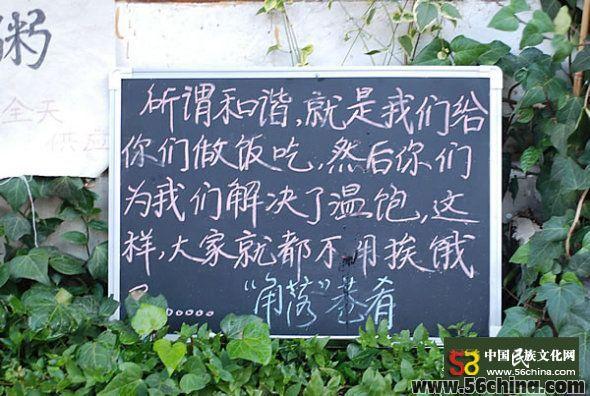 粥
全天
供应
所谓和谐，就是我们给
你们做饭吃，然后你们
为我们解决了温饱，这
样，大家就都不用挨饿
了……
“角落”巷肴
58 中国民族文化网
www.56china.com
www.56china.com